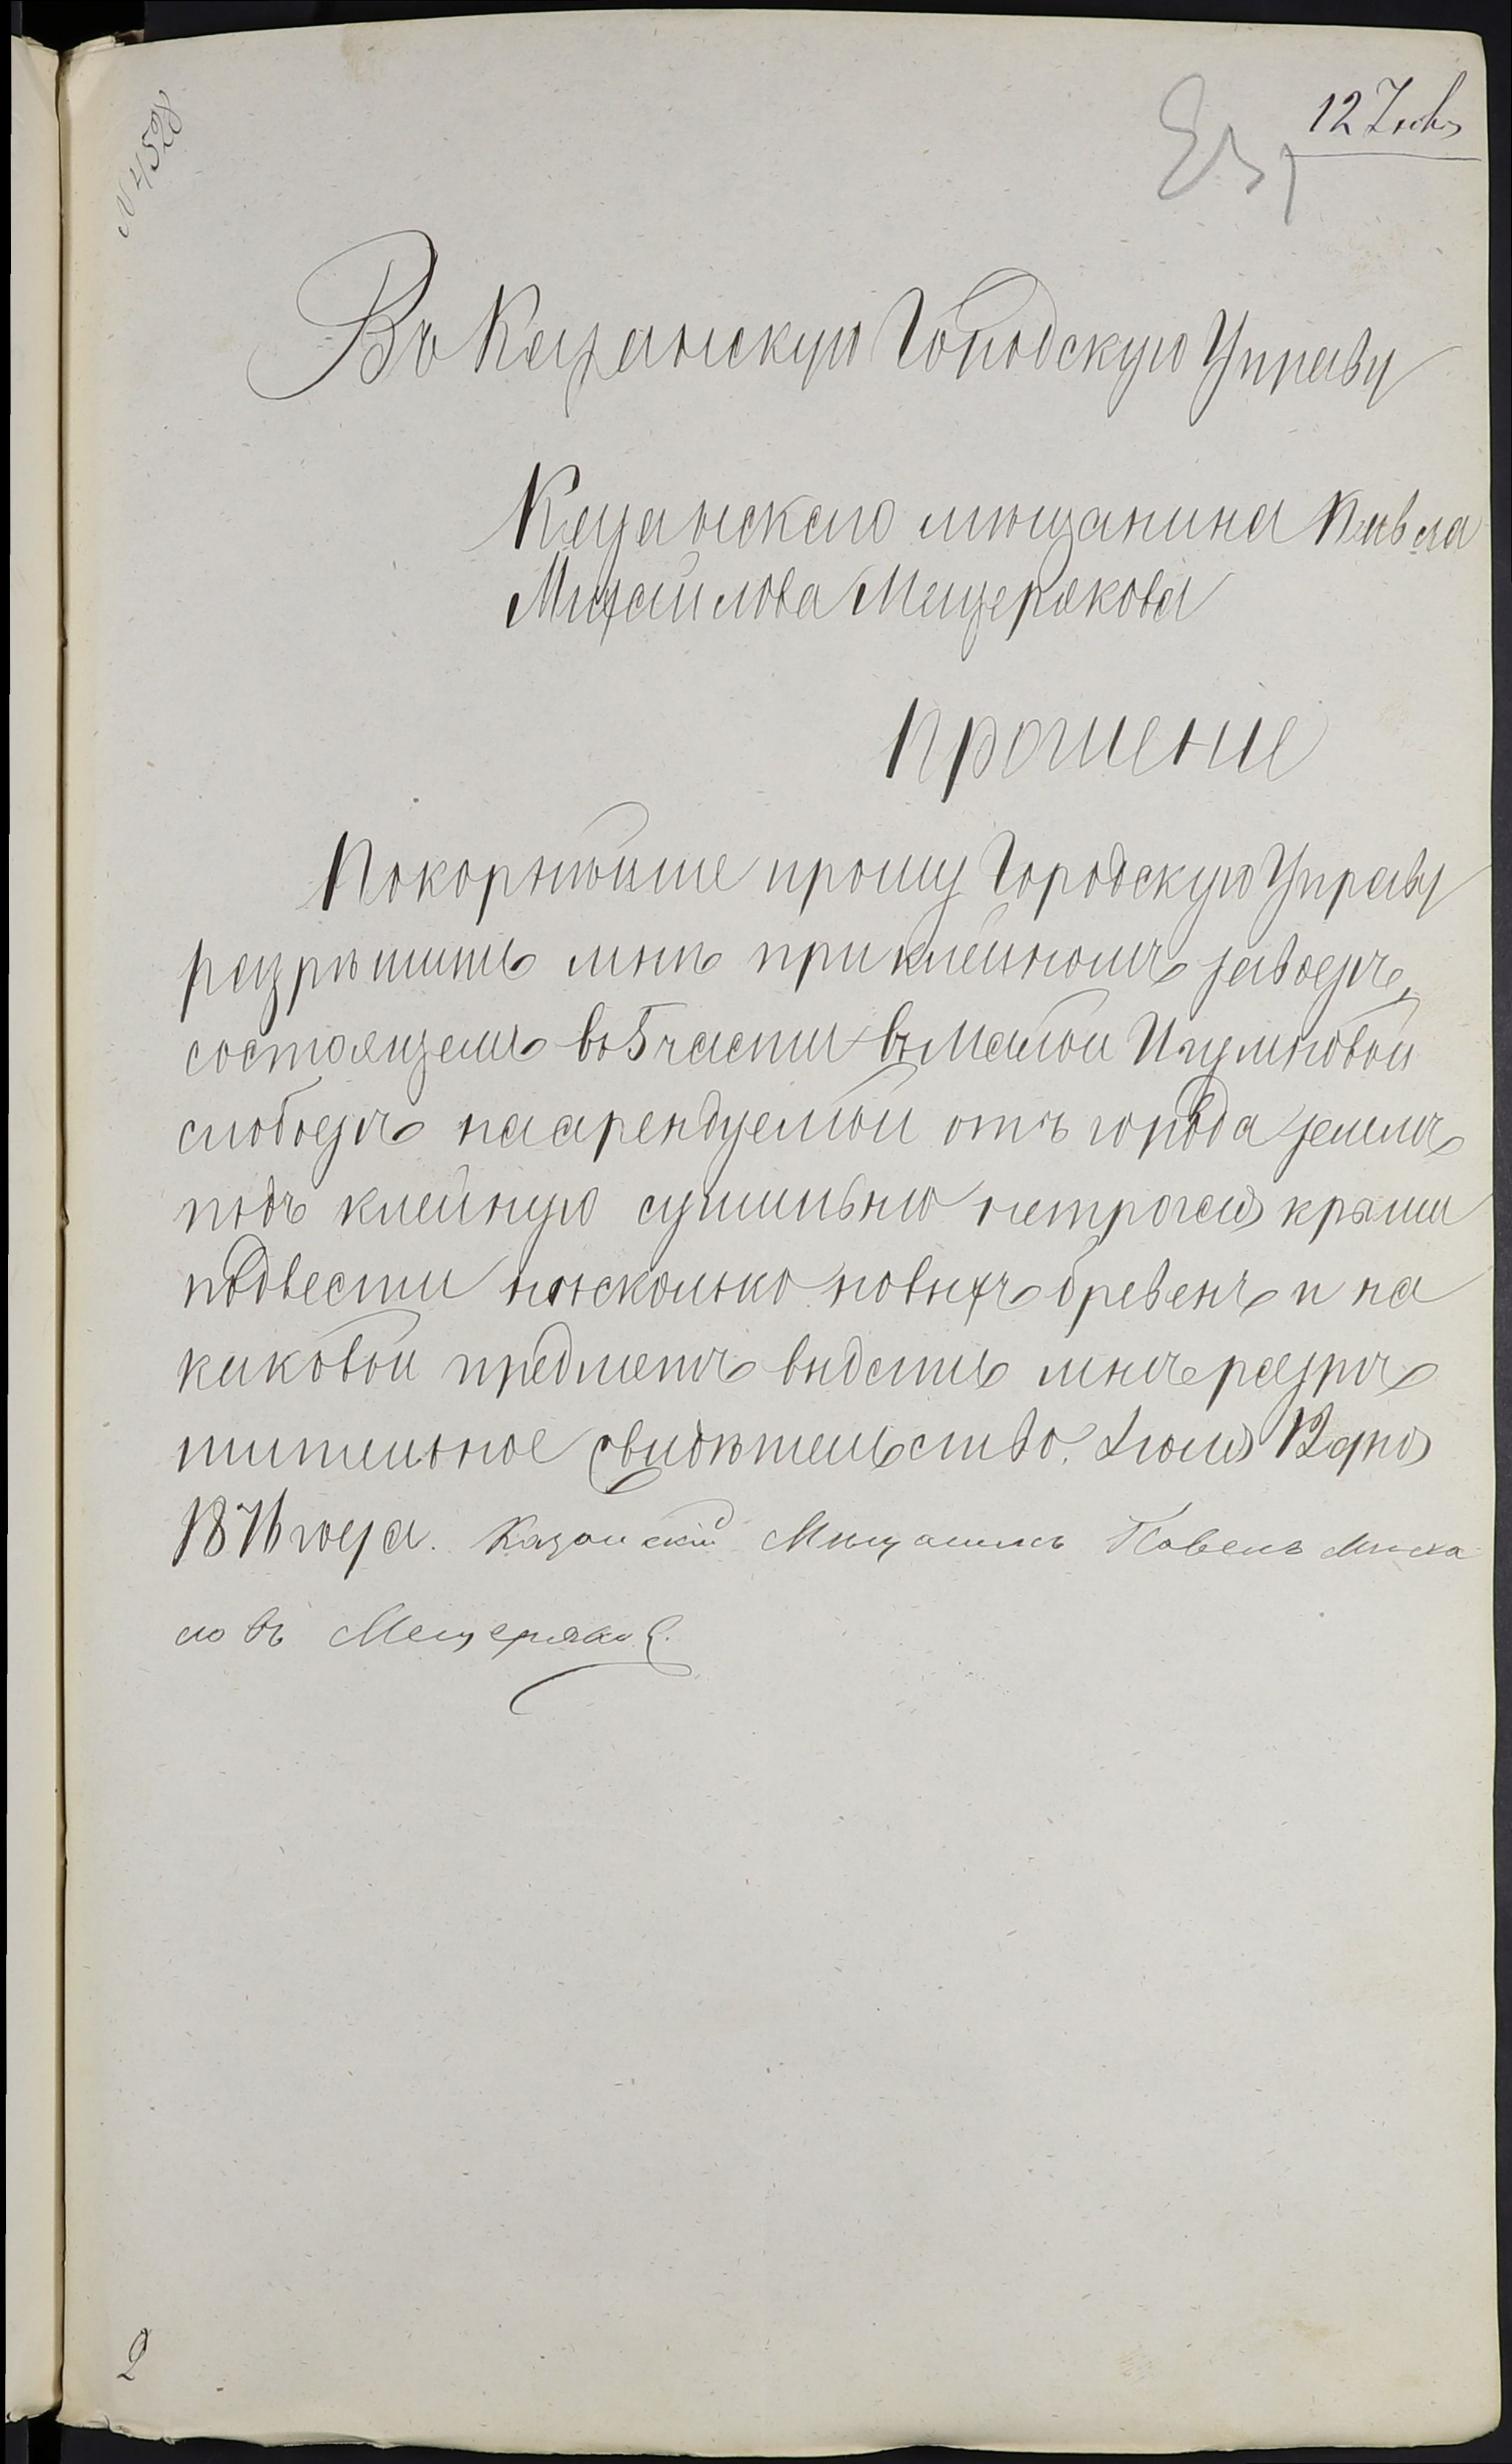 № 4528
12 Іюля
Въ Казанскую Городскую Управу
Казанского мещанина Павла
Михайлова Мещерякова
Прошение
Покорнейше прошу Городскую Управу
разрешить мнѣ при клейномъ заводѣ,
состоящемъ въ 5 части въ Малой Игумновой
слободѣ на арендуемой отъ города земле
подъ клейную сушильню нетрогая крыши
подвести несколько новыхъ бревенъ и на
каковой предметъ выдать мнѣ разрѣ
шительное свидѣтельство. Іюля 12 дня
1876 года. Казанский Мещанинъ Павелъ Миха
ловъ Мещеряков.
2